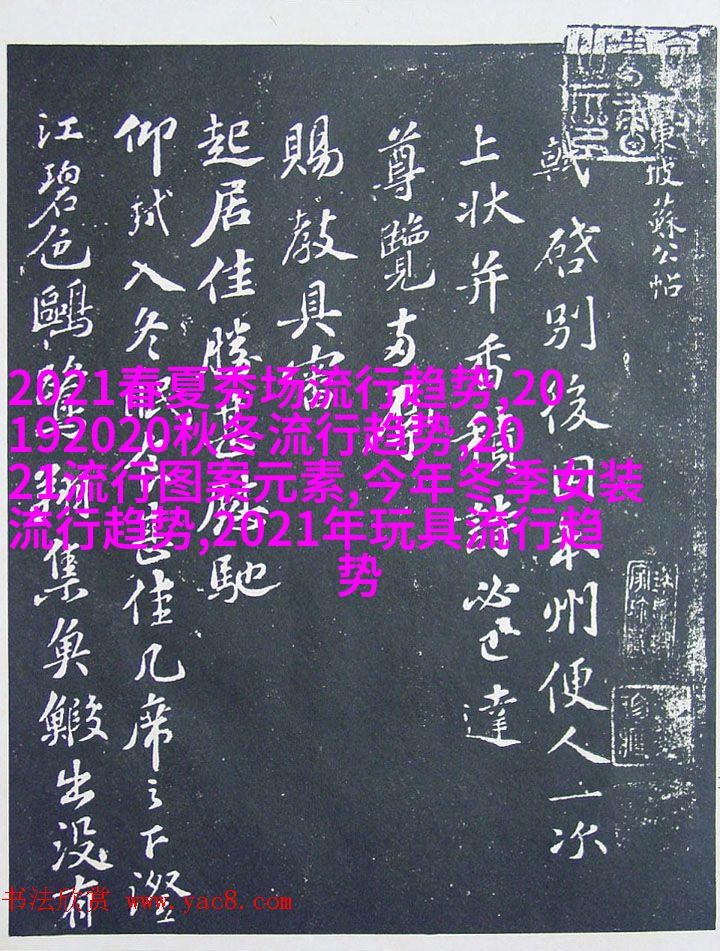 東坡蘇公帖
軾啓別後因本州便人一次
上状并香積詩必已達
尊覽专辱
賜教具審
起居佳勝甚慰馳
仰軾入冬眠食甚佳几席之下澄
江碧色鷗鷺翔集魚鰕出没有
2021春夏秀场流行趋势,20
192020秋冬流行趋势,20
21流行图案元素,今年冬季女装
流行趋势,2021年玩具流行趋
势
书法欣赏 www.yac8.com